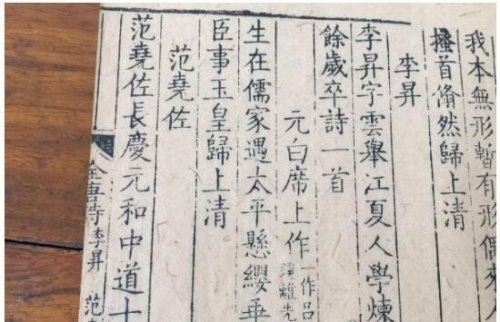 我本無形暫有形偶來人
搔首翛然歸上清
李昇
李昇字雲舉江夏人學煉
餘歲卒詩一首
元白席上作一作呂
生在儒家遇太平懸纓垂
臣事玉皇歸上清
范堯佐
范堯佐長慶元和中道士
全唐詩 李昇 范